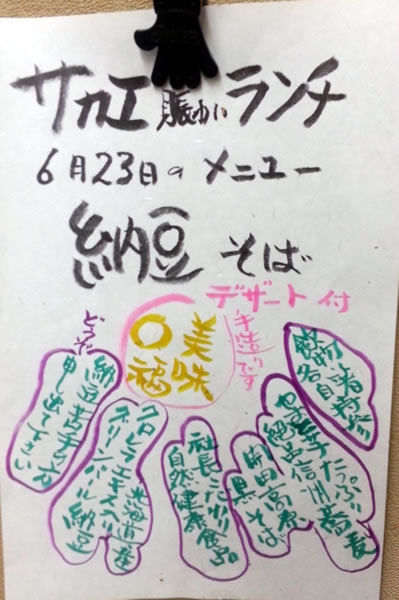 サカエ賑わいランチ
6月23日のメニュー
納豆そば
デザート付
手造りです
美味
〇福
やま芋たっぷり
絶品信州蕎麦
開田高原
社長こだわり
自然健康食品
北海道産
クロレラエキス入り
グリーンパール納豆
どうぞ
納豆苦手の方
申し出て下さい